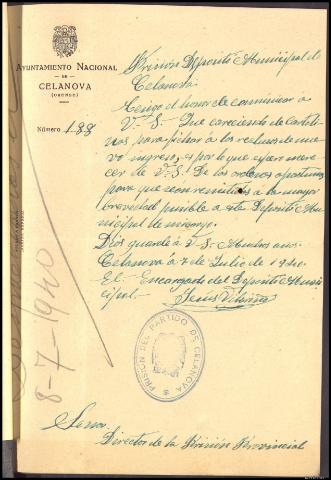 AYUNTAMIENTO NACIONAL
DE
CELANOVA
(ORENSE)
Número 188
Prision Deposito Municipal de
Celanova.
Tengo el honor de comunicar á
V. S. Que careciendo de
para fichar á los reclusos de nue
vo ingreso, es por lo que
de V. S. De las ordenes oportunas
para que sean remitidos á la mayor
brevedad posible á este Deposito Mu
nicipal de mi cargo.
Dios guarde á V. S. Muchos años.
Celanova á 7 de Julio de 1940.
El Encargado del Deposito Muni
cipal.
Jesus
8-7-1940
PRISION DEL PARTIDO DE CELANOVA
Senor
Director de la Prision Provincial